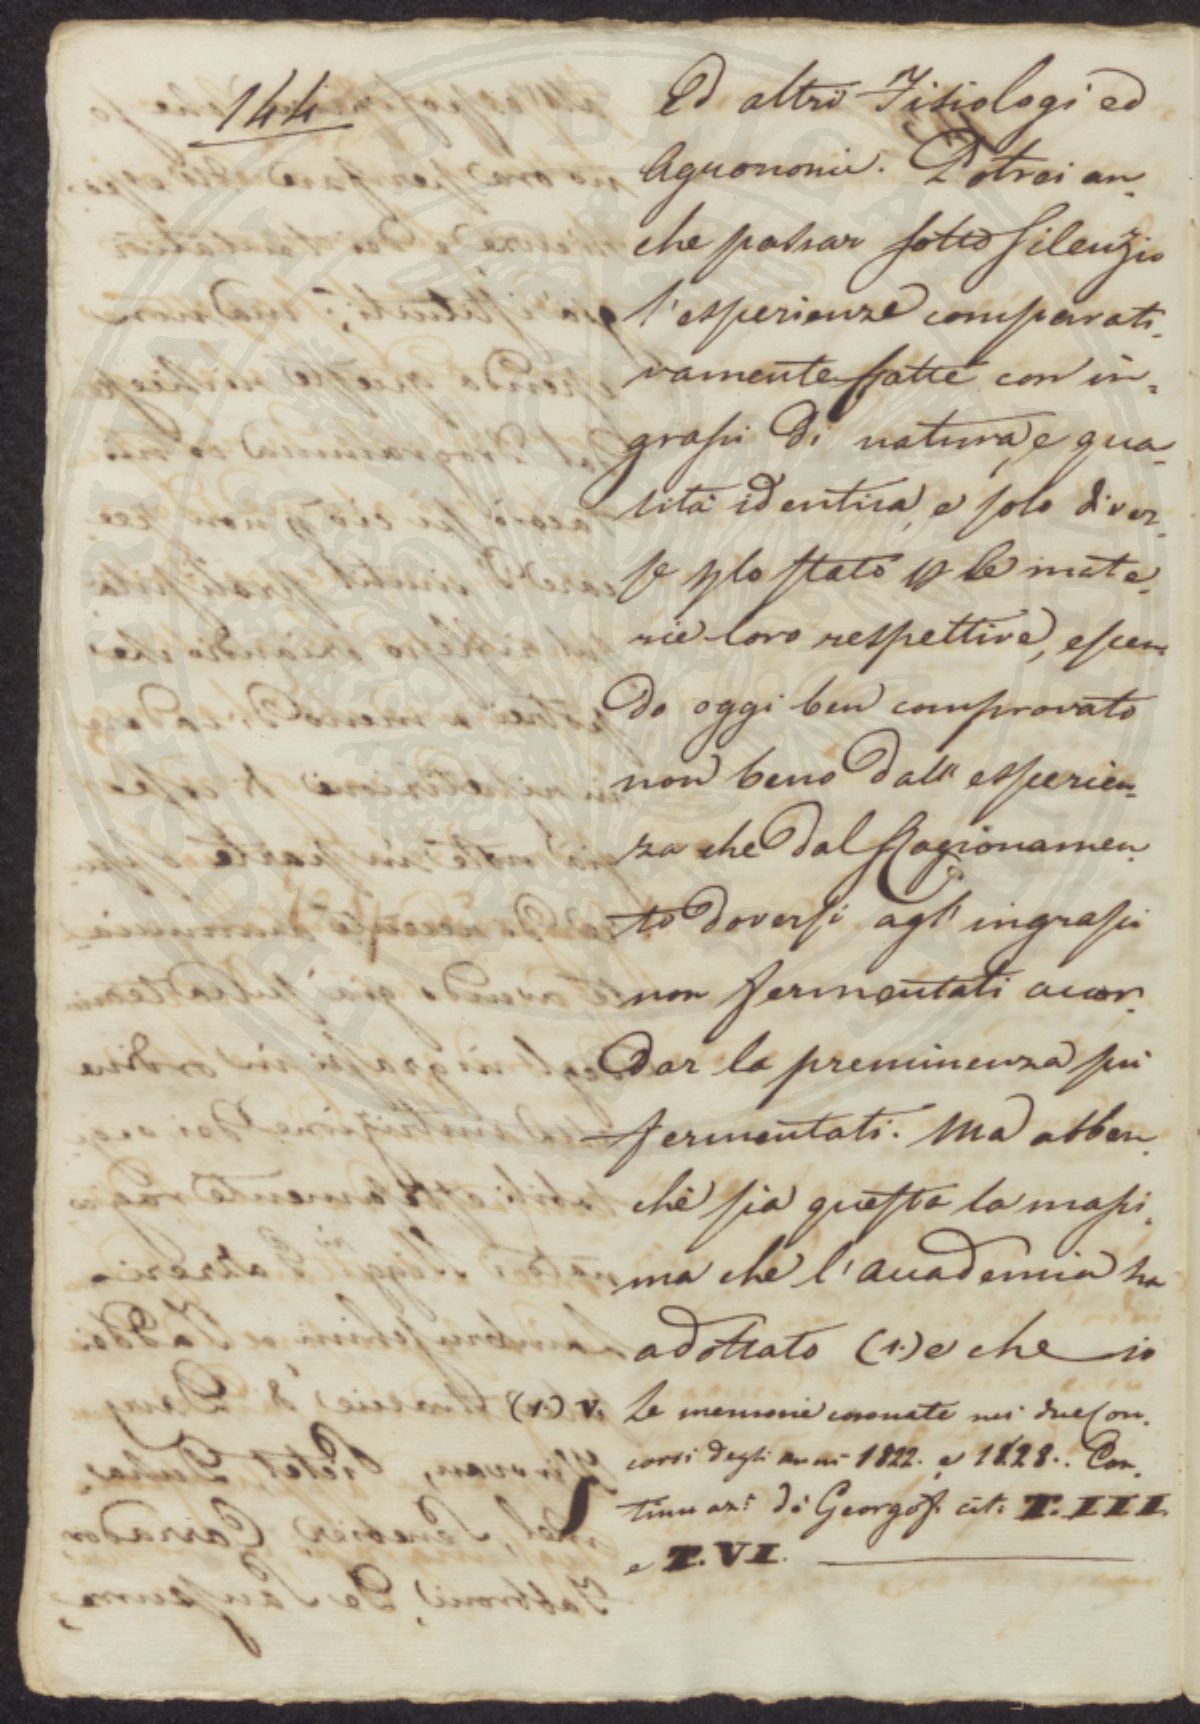 144
Ed altri Fisiologi ed
Agrononii. Potrei an=
che passar sotto silenzio
l'esperienze comparati=
vamente fatte con in=
grassi di natura, e qua=
lità identica, e solo diver=
se p lo stato p le mate=
rie loro respettive, essen=
do oggi ben comprovato
non beno dall' esperien=
za che dal Ragionamen=
to doversi agl' ingrassi
non fermentati accor=
dar la preminenza sui
fermentati. Ma abben=
chè sia questa la massi=
ma che l'Accademia ha
adottato (1.) e che io
(1.) V. Le memorie coronate nei due Con=
corsi degli anni 1822. e 1828.. Con=
tinuaz: dei Georgof. cit: T. III
e T. VI.